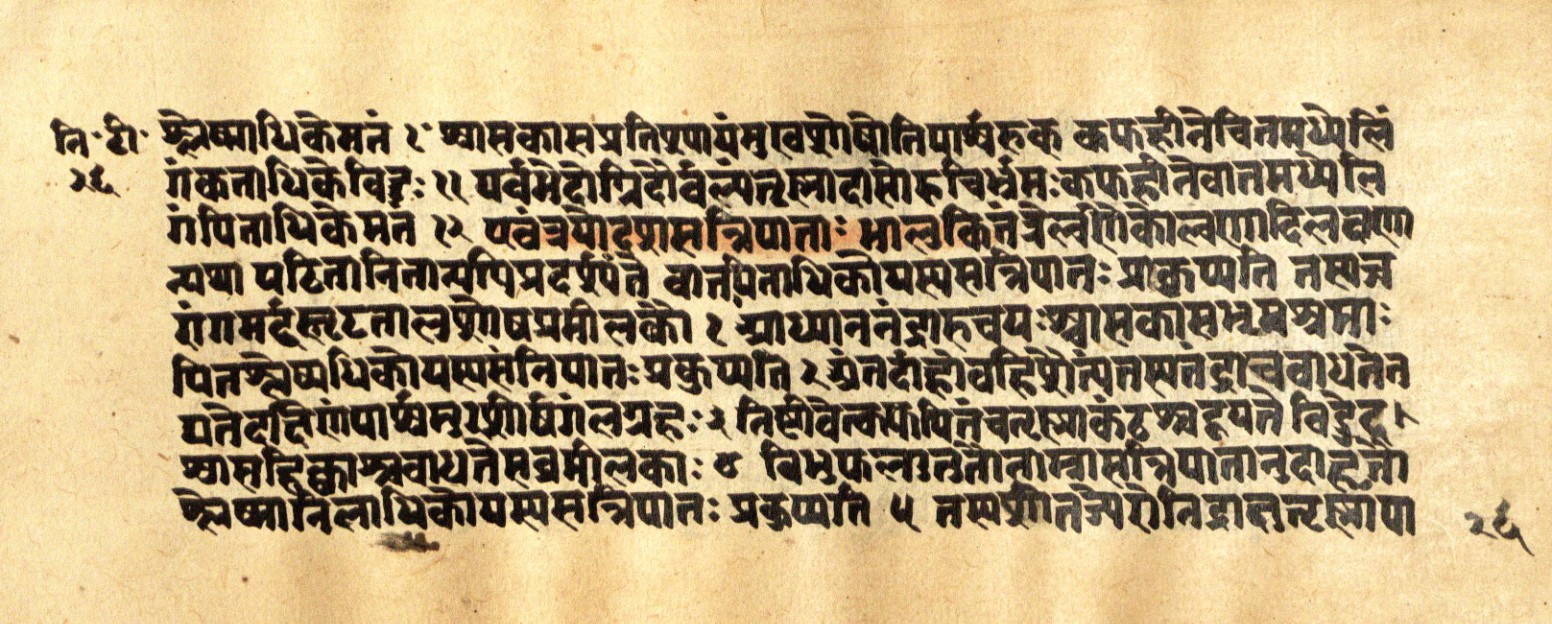 नि॰ टी॰ श्लेष्माधिके मतं १॰ श्वासकासप्रतिश्यायंमुखशोषोतिपार्श्वरुक् कफहीनेचित्तमध्येलिं
२६ गंवाताधिकेविदुः ११ पर्वभेदोग्निदौर्वल्यंतृष्मादाहोरुचिर्भ्रमः कफहीनेवातमध्येलिं
गंपित्ताधिकेमतं १२ एवंत्रयोदशसन्निपाताः भालुकितंत्रेल्वणैकोल्वणादिलक्षणा
न्यथा पठितानितान्यपिप्रदर्श्यंते वातपित्ताधिकोयस्यसन्निपातः प्रकुप्यति तस्यज्व
रांगमर्दस्तृट्तालुशोषप्रमीलकौ १ आध्मानतंद्रारुचयः श्वासकासभ्रमश्रमाः
पित्तश्लेष्मधिकोयस्यसंनिपातः प्रकुप्यति २ अंतर्दाहोवहिःशैत्यंतस्यतंद्राचवाधतेतु
द्यतेदक्षिणंपार्श्वमुरःशीर्षगलग्रहः ३ निष्ठीवेत्कफपित्तंचतृष्माकंठश्चदूयते विड्भेद
श्वासहिक्काश्चवाधतेसप्रमीलकाः ४ विभुफल्गूतुतौनाम्नासंन्निपातावुदाहृतौ
श्लेष्मानिलाधिकोयस्यसन्निपातः प्रकुप्यति ५ तस्यशीतज्वरोनिद्राक्षुत्तृष्मापा
२६